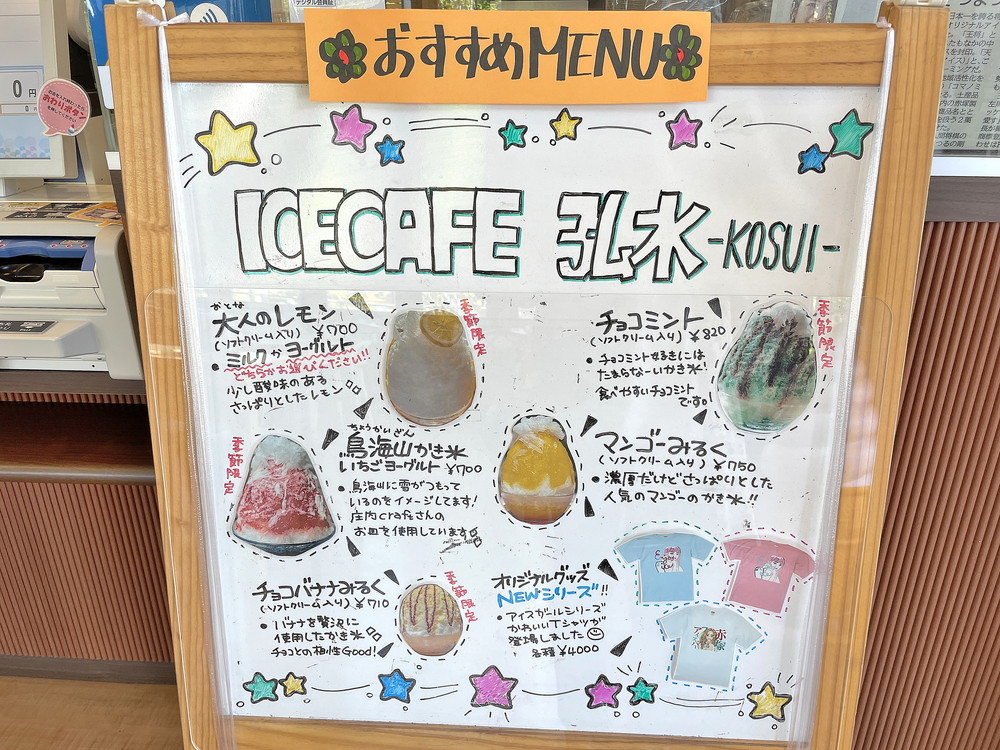 おすすめMENU
ICECAFE 弘水 -KOSUI-
おとな
大人のレモン
(ソフトクリーム入り) ¥700
• ミルクかヨーグルト
どちらかお選びください!!
少し酸味のある
さっぱりとしたレモン
季節限定
チョコミント
(ソフトクリーム入り) ¥820
• チョコミント好きには
たまらないかき氷!
食べやすいチョコミント
です。
季節限定
季節限定
ちょうかいざん
鳥海山かき氷
いちごヨーグルト ¥700
• 鳥海山に雪がつもって
いるのをイメージしてます!
庄内craftさんの
お皿を使用しています
マンゴーみるく
(ソフトクリーム入り) ¥750
• 濃厚だけどさっぱりとした
人気のマンゴーのかき氷!!
チョコバナナみるく
(ソフトクリーム入り) ¥710
• バナナを贅沢に
使用したかき氷
チョコとの相性Good!
季節限定
オリジナルグッズ
NEWシリーズ!!
• アイスガールシリーズ
かわいいTシャツが
登場しました
各種 ¥4000
0円
おわりボタン